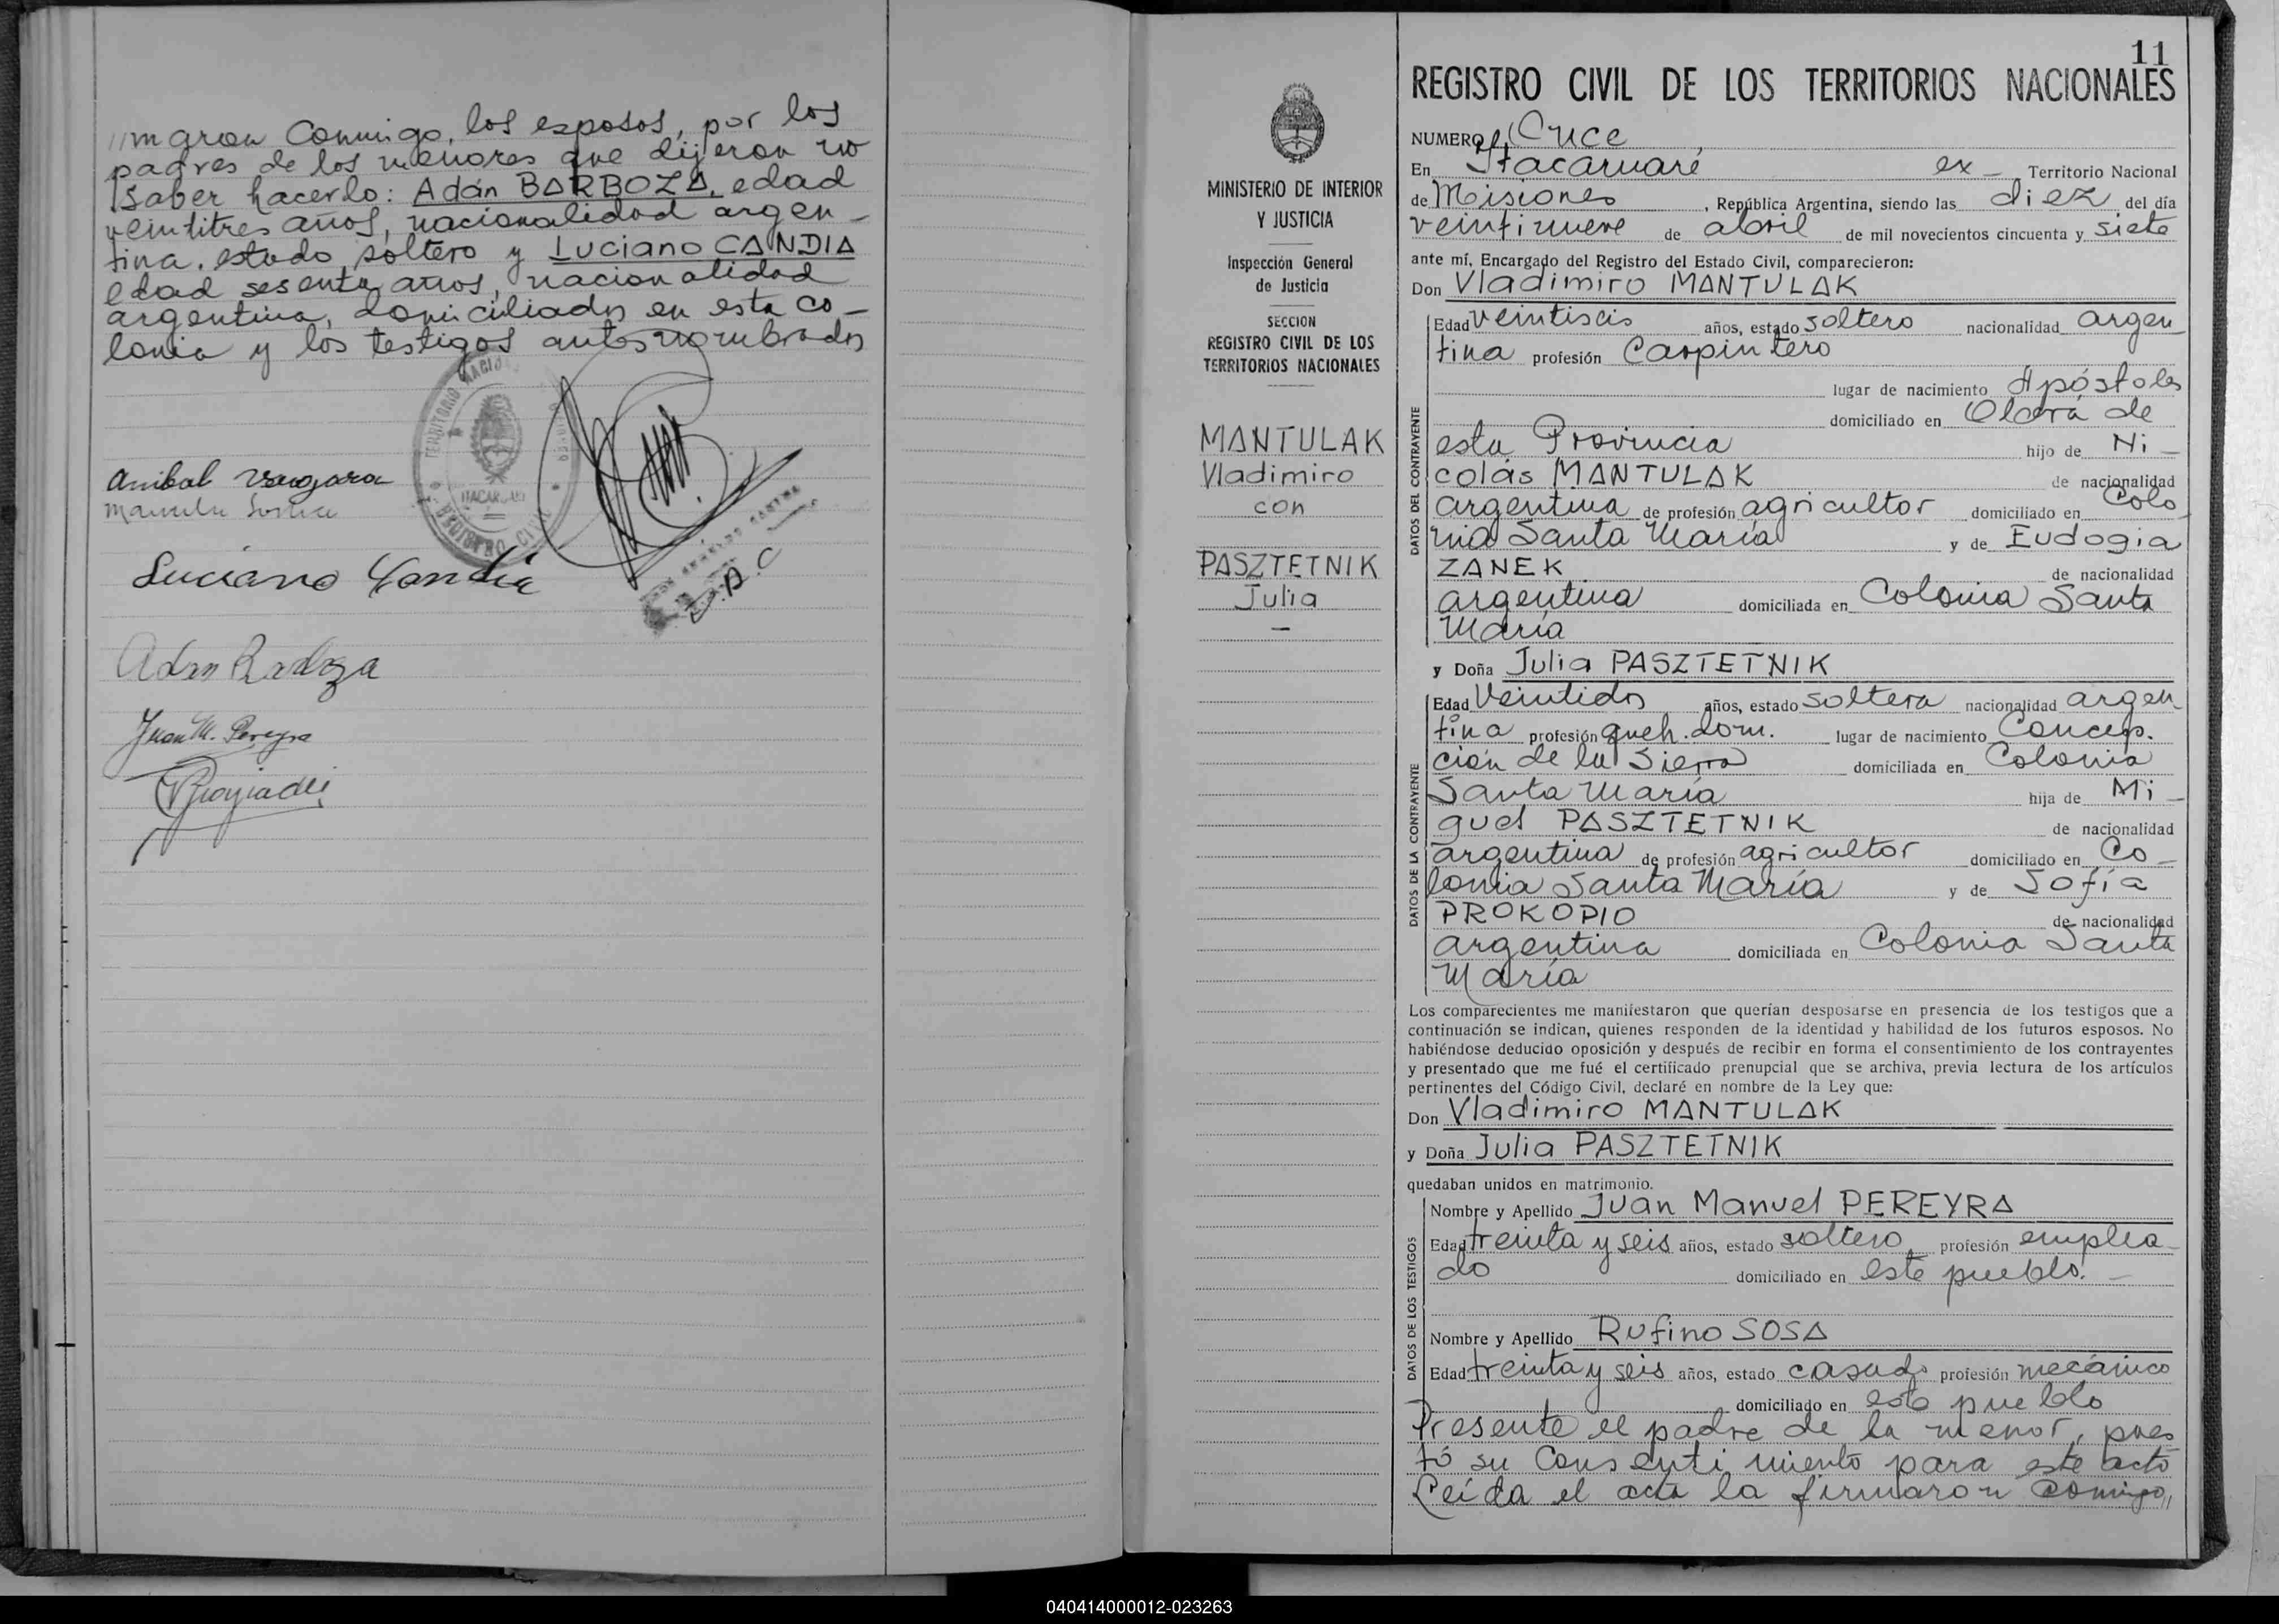 //maron Conmigo, los esposos, por los
padres de los menores que dijeron no
saber hacerlo: Adán BARBOZA, edad
veintitres años, nacionalidad argen-
tina, estado soltero y Luciano CANDIA
edad sesenta años, nacionalidad
argentina, domiciliados en esta co-
lonia y los testigos antesnombrados
TERRITORIO NACIO
REGISTRO CIVIL
Anibal Vergara
Luciano Candia
Adan Barboza
Juan M. Pereyra
11
REGISTRO CIVIL DE LOS TERRITORIOS NACIONALES
MINISTERIO DE INTERIOR
Y JUSTICIA
Inspección General
de Justicia
SECCION
REGISTRO CIVIL DE LOS
TERRITORIOS NACIONALES
MANTULAK
Vladimiro
con
PASZTETNIK
Julia
—
NUMERO Once
En Itacaruaré ex- Territorio Nacional
de Misiones, República Argentina, siendo las diez del día
veintinueve de abril de mil novecientos cincuenta y siete
ante mí, Encargado del Registro del Estado Civil, comparecieron:
Don Vladimiro MANTULAK
DATOS DEL CONTRAYENTE
Edad veintiseis años, estado soltero nacionalidad argen
tina profesión Carpintero
lugar de nacimiento Apóstoles
domiciliado en Olerá de
esta Provincia hijo de Ni-
colás MANTULAK de nacionalidad
argentina de profesión agricultor domiciliado en Colo
nia Santa María y de Eudogia
ZANEK de nacionalidad
argentina domiciliada en Colonia Santa
María
y Doña Julia PASZTETNIK
DATOS DE LA CONTRAYENTE
Edad Veintidos años, estado soltera nacionalidad argen
tina profesión queh. dom. lugar de nacimiento Concep.
ción de la Sierra domiciliada en Colonia
Santa María hija de Mi-
guel PASZTETNIK de nacionalidad
argentina de profesión agricultor domiciliado en Co-
lonia Santa María y de Sofía
PROKOPIO de nacionalidad
argentina domiciliada en Colonia Santa
María
Los comparecientes me manifestaron que querían desposarse en presencia de los testigos que a
continuación se indican, quienes responden de la identidad y habilidad de los futuros esposos. No
habiéndose deducido oposición y después de recibir en forma el consentimiento de los contrayentes
y presentado que me fué el certificado prenupcial que se archiva, previa lectura de los artículos
pertinentes del Código Civil, declaré en nombre de la Ley que:
Don Vladimiro MANTULAK
y Doña Julia PASZTETNIK
quedaban unidos en matrimonio.
DATOS DE LOS TESTIGOS
Nombre y Apellido Juan Manuel PEREYRA
Edad treinta y seis años, estado soltero, profesión emplea-
do domiciliado en este pueblo.-
Nombre y Apellido Rufino SOSA
Edad treinta y seis años, estado casado profesión mecánico
domiciliado en este pueblo
Presente el padre de la menor, pres
tó su Consentimiento para este acto
Leída el acta la firmaron comigo,,
040414000012-023263